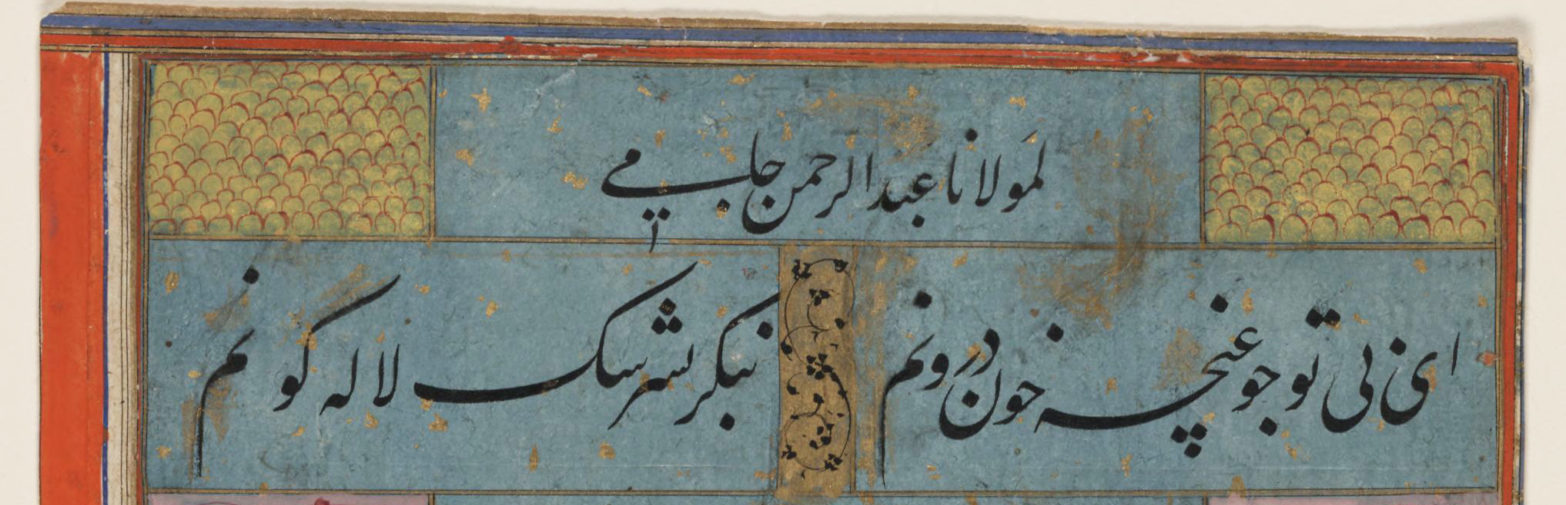 لمولانا عبدالرحمن جامی
ای بی تو جو غنچه خون درونم بنکر بسرشک لاله کونم